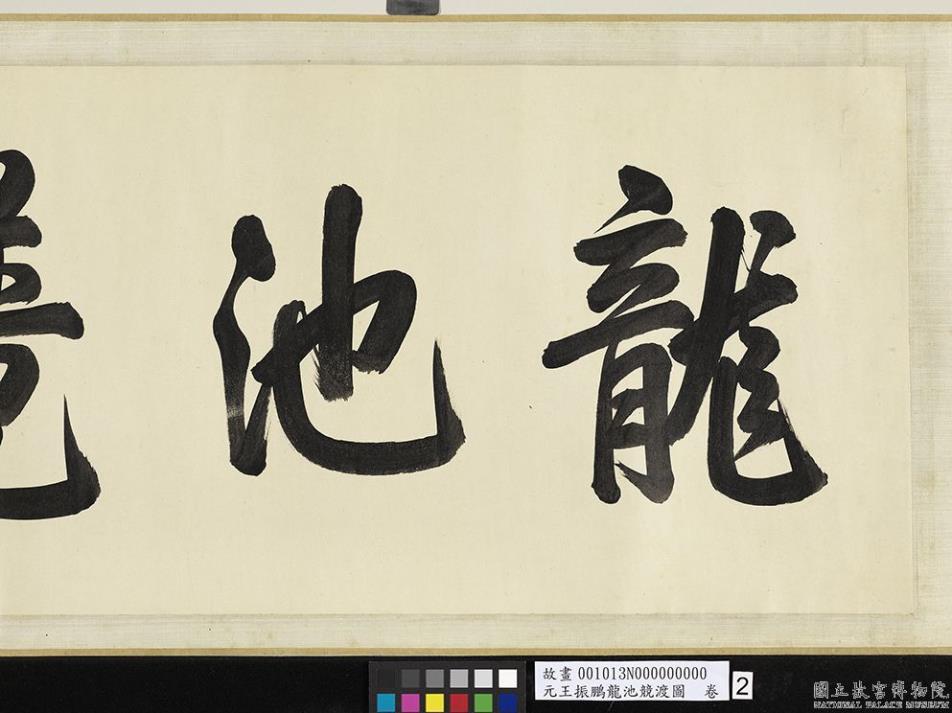 龍池競
故畫 001013N000000000
元王振鵬龍池競渡圖 卷
2
國立故宮博物院
NATIONAL PALACE MUSEUM